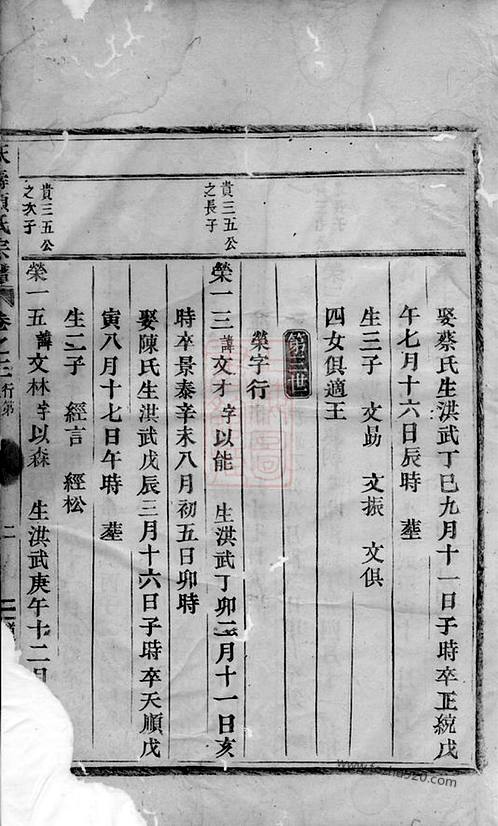 娶蔡氏生洪武丁巳九月十一日子時卒正統戊
午七月十六日辰時 塟
生三子 文勗 文振 文俱
四女俱適王
第三世
榮字行
貴三五公
之長子
榮一三 諱文才 字以能 生洪武丁卯二月十一日亥
時卒景泰辛未八月初五日卯時
娶陳氏生洪武戊辰三月十六日子時卒天順戊
寅八月十七日午時 塟
生二子 經言 經松
貴三五公
之次子
榮一五 諱文林 字以森 生洪武庚午十二月
氏宗譜 卷之二 行第 二
www.fozhu920.com